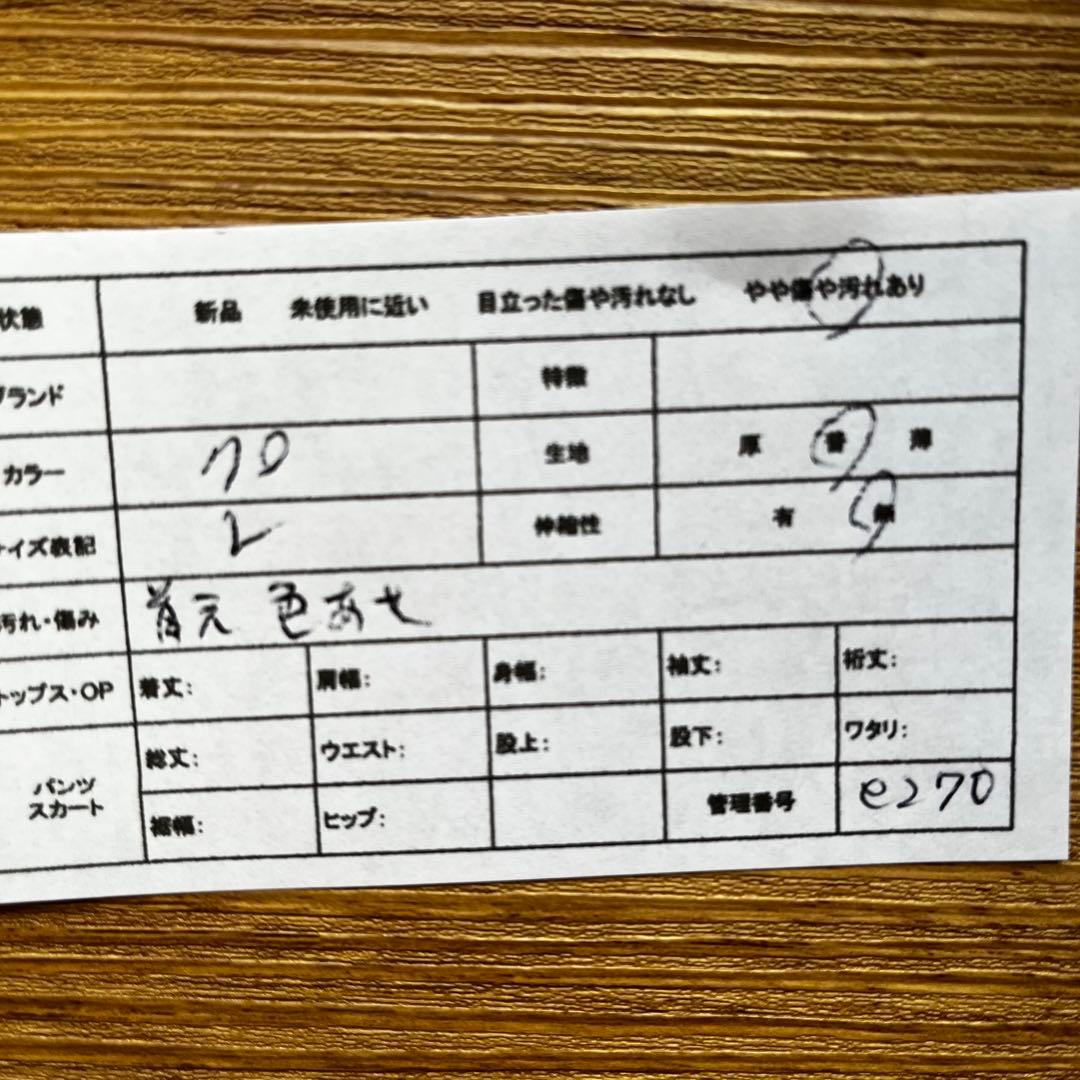 状態 新品 未使用に近い 目立った傷や汚れなし やや傷や汚れあり
ブランド 特徴
カラー クロ 生地 厚 普 薄
イズ表記 L 伸縮性 有 無
汚れ・傷み 首元 色あせ
トップス・OP 着丈: 肩幅: 身幅: 袖丈: 裄丈:
パンツ スカート
総丈: ウエスト: 股上: 股下: ワタリ:
裾幅: ヒップ: 管理番号 e270